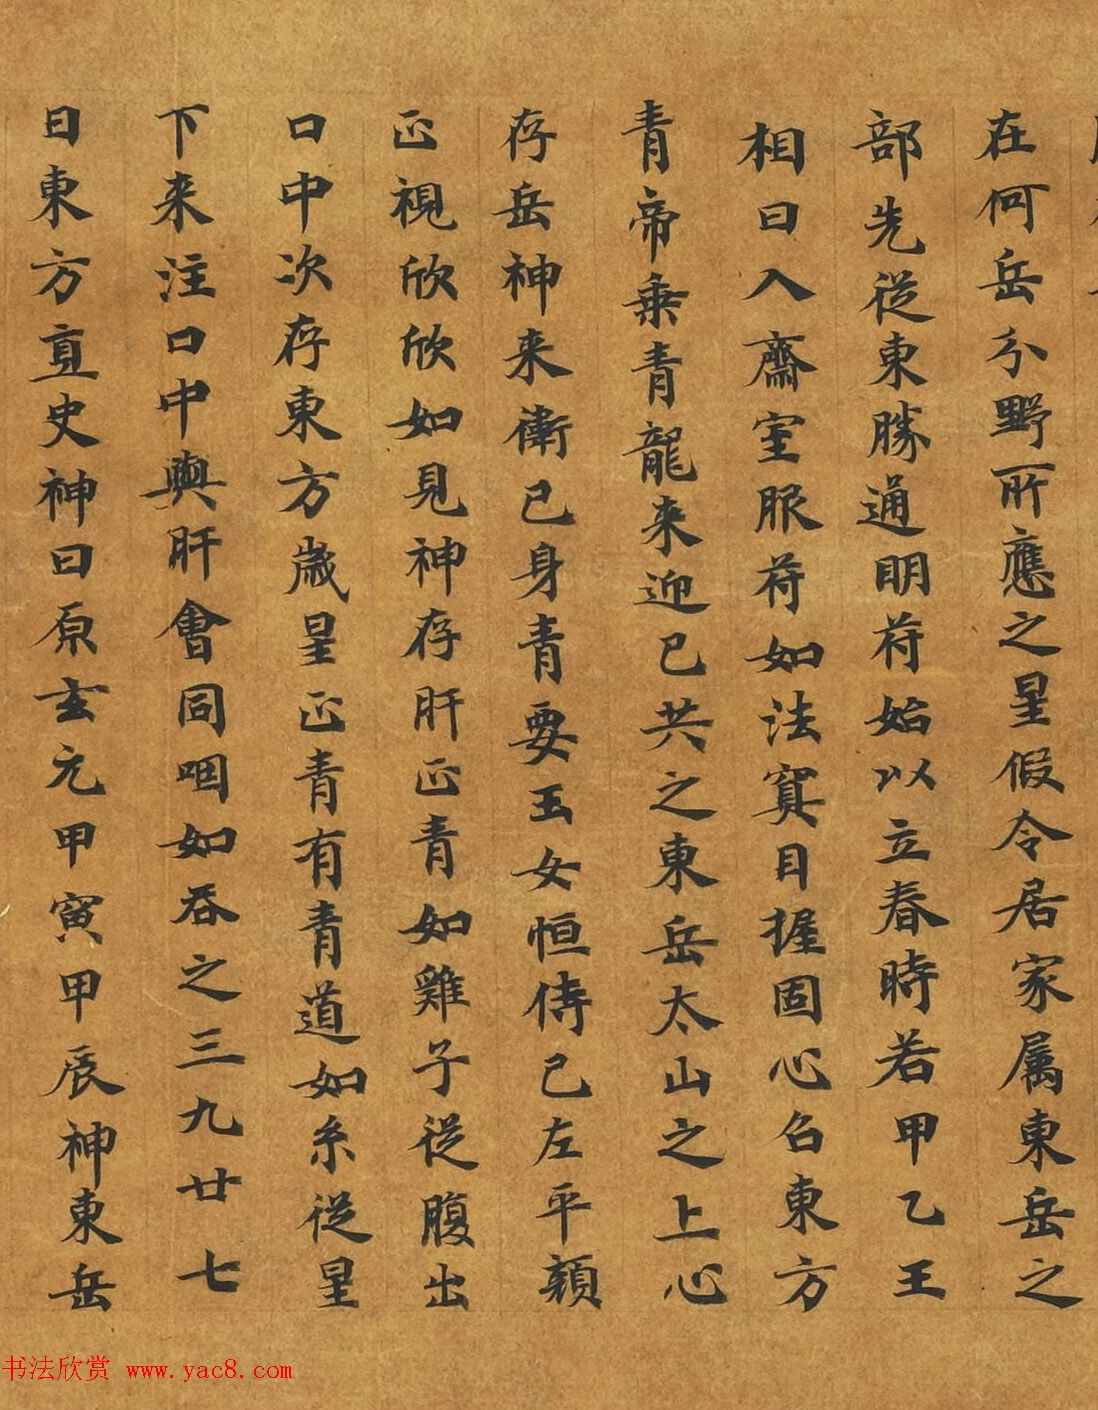 在何岳分野所應之星假令居家属東岳之
部先從東勝通明符始以立春時若甲乙王
相日入齋室服符如法寘目握固心名東方
青帝乗青龍来迎已共之東岳太山之上心
存岳神来衛已身青要玉女恒侍己左平顔
正視欣欣如見神存肝正青如雞子從腹出
口中次存東方歲星正青有青道如糸從星
下来注口中與肝會同咽如吞之三九廿七
日東方直史神曰原玄元甲寅甲辰神東岳
书法欣赏 www.yac8.com